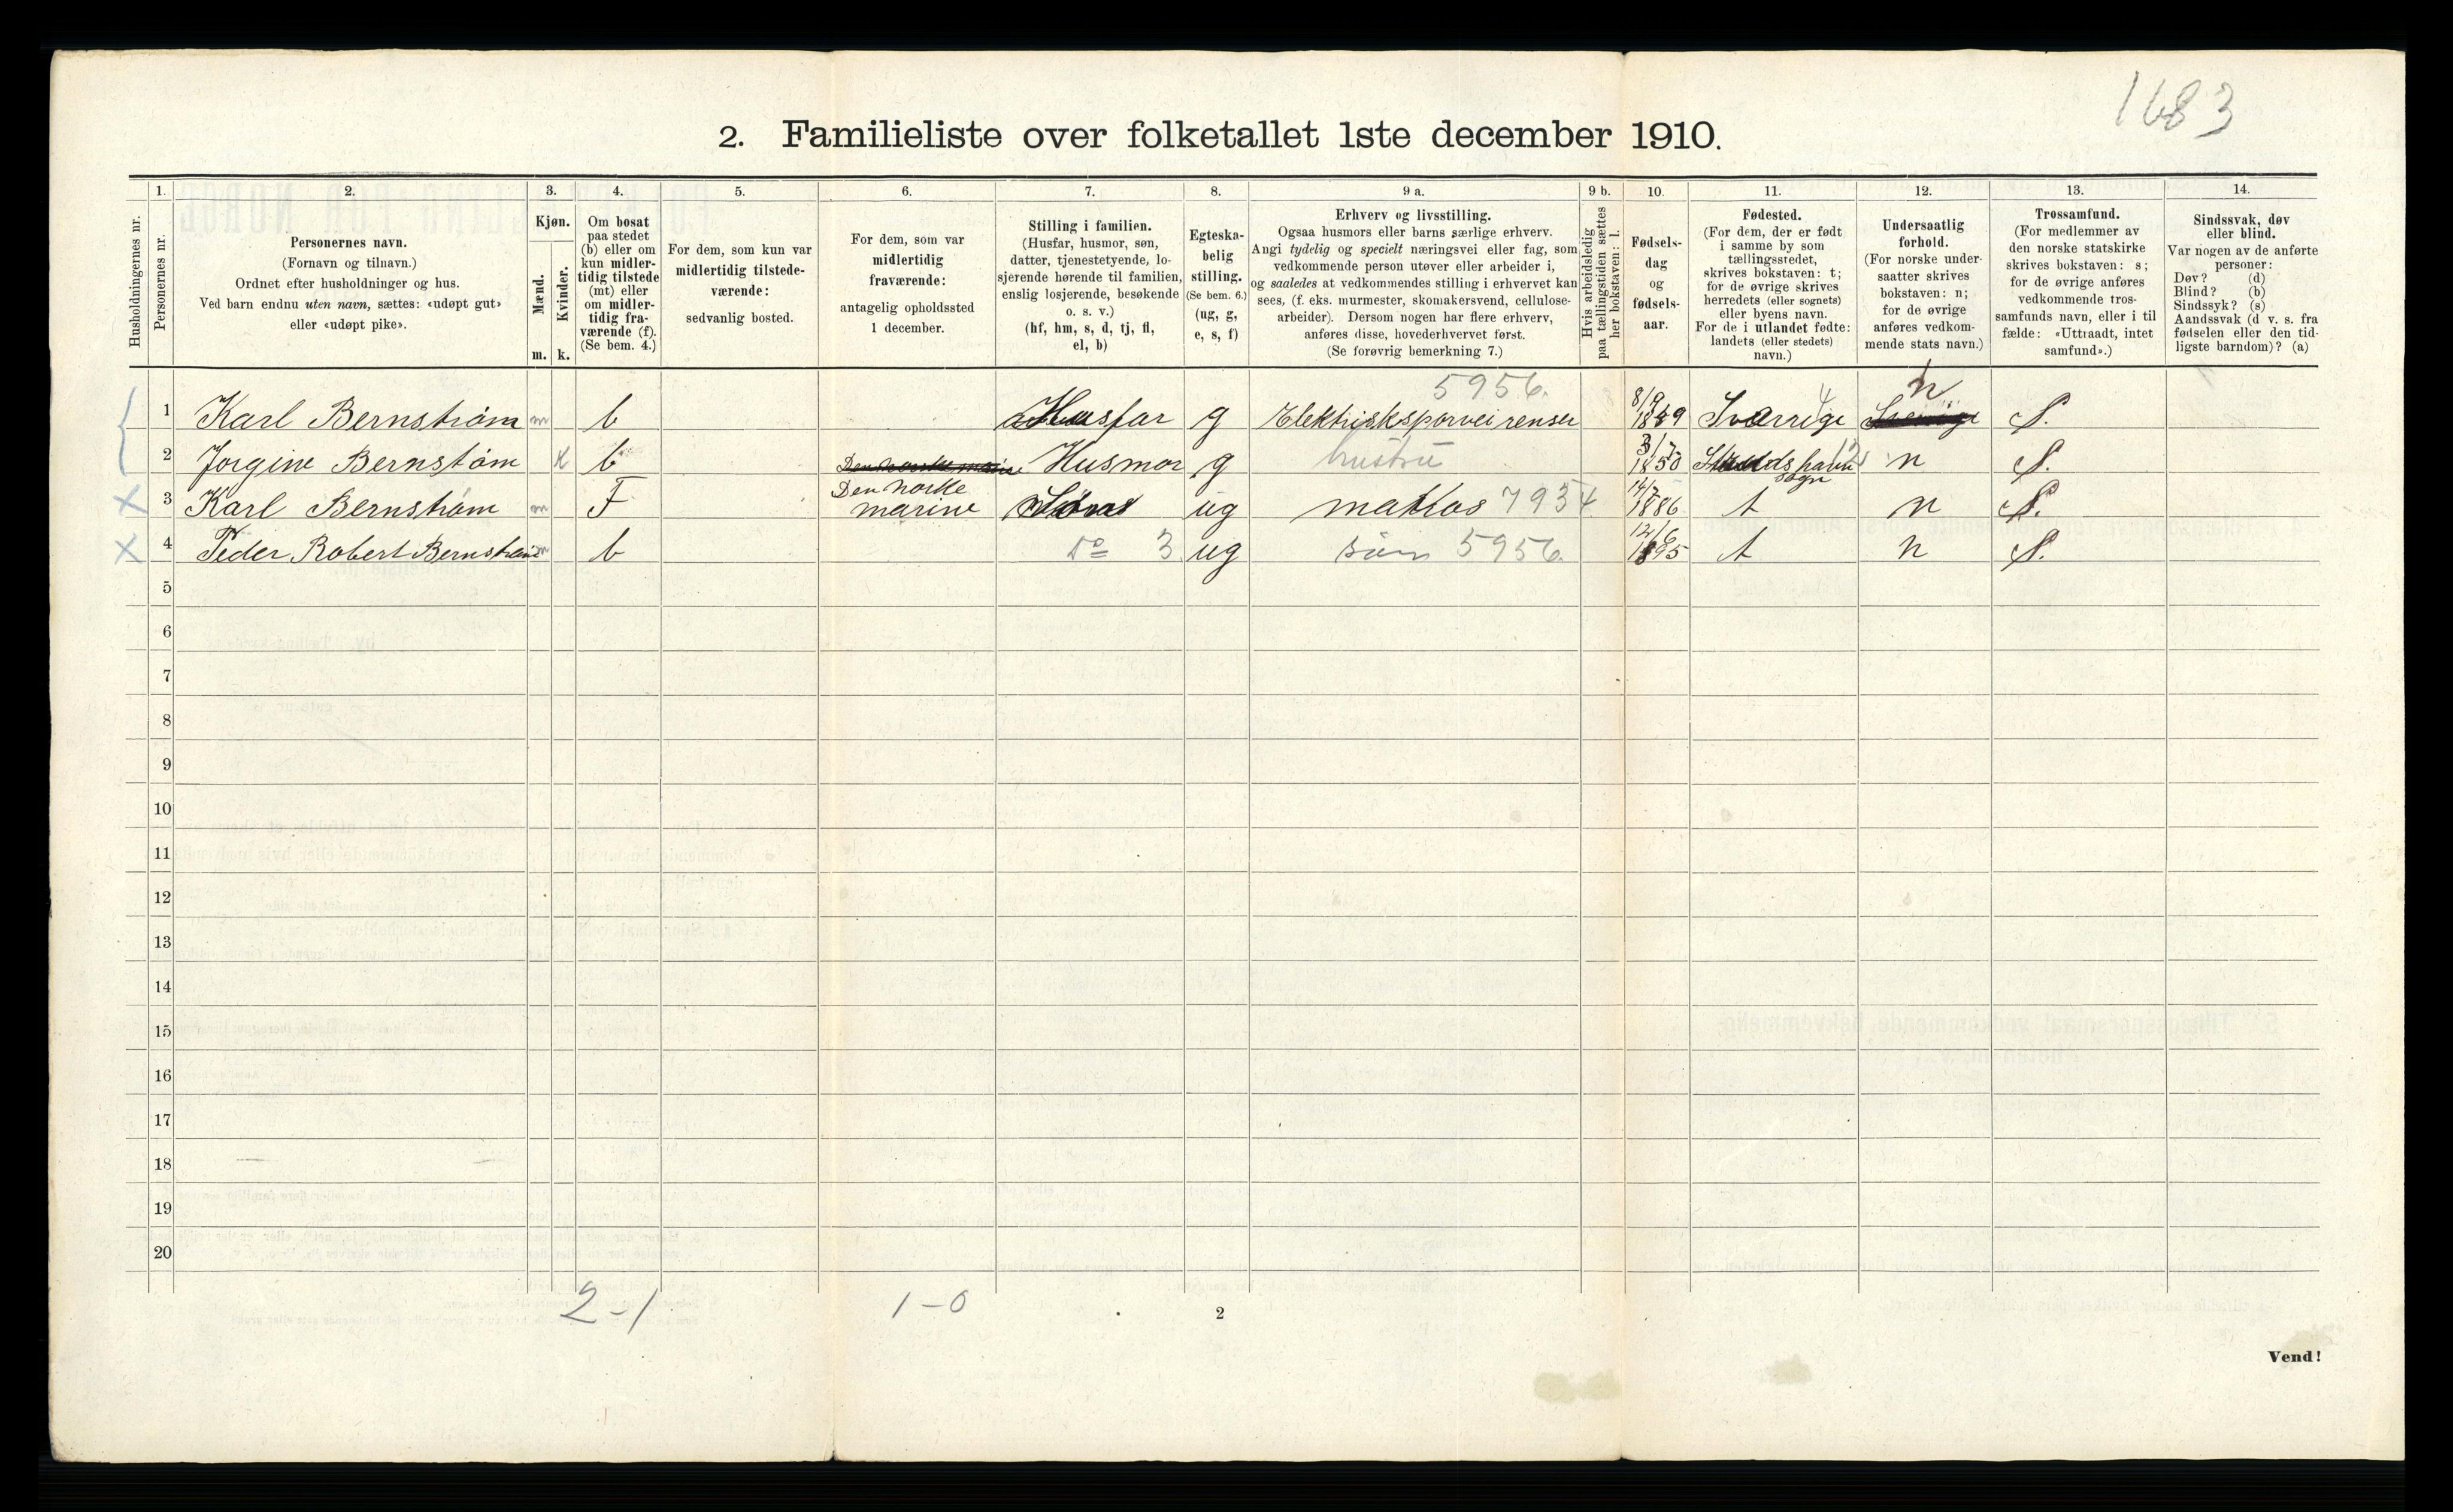 1683
2. Familieliste over folketallet 1ste december 1910.
Husholdningernes nr.
1.
Personernes nr.
2.
Personernes navn.
(Fornavn og tilnavn.)
Ordnet efter husholdninger og hus.
Ved barn endnu uten navn, sættes: «udøpt gut»
eller «udøpt pike».
3.
Kjøn.
Mænd.
Kvinder.
m. k.
4.
Om bosat
paa stedet
(b) eller om
kun midler-
tidig tilstede
(mt) eller
om midler-
tidig fra-
værende (f).
(Se bem. 4.)
5.
For dem, som kun var
midlertidig tilstede-
værende:
sedvanlig bosted.
6.
For dem, som var
midlertidig
fraværende:
antagelig opholdssted
1 december.
7.
Stilling i familien.
(Husfar, husmor, søn,
datter, tjenestetyende, lo-
sjerende hørende til familien,
enslig losjerende, besøkende
o. s. v.)
(hf, hm, s, d, tj, fl,
el, b)
8.
Egteska-
belig
stilling.
(Se bem. 6.)
(ug, g,
e, s, f)
9 a.
Erhverv og livsstilling.
Ogsaa husmors eller barns særlige erhverv.
Angi tydelig og specielt næringsvei eller fag, som
vedkommende person utøver eller arbeider i,
og saaledes at vedkommendes stilling i erhvervet kan
sees, (f. eks. murmester, skomakersvend, cellulose-
arbeider). Dersom nogen har flere erhverv,
anføres disse, hovederhvervet først.
(Se forøvrig bemerkning 7.)
9 b.
Hvis arbeidsledig
paa tællingstiden sættes
her bokstaven: l.
10.
Fødsels-
dag
og
fødsels-
aar.
11.
Fødested.
(For dem, der er født
i samme by som
tællingsstedet,
skrives bokstaven: t;
for de øvrige skrives
herredets (eller sognets)
eller byens navn.
For de i utlandet fødte:
landets (eller stedets)
navn.)
12.
Undersaatlig
forhold.
(For norske under-
saatter skrives
bokstaven: n;
for de øvrige
anføres vedkom-
mende stats navn.)
13.
Trossamfund.
(For medlemmer av
den norske statskirke
skrives bokstaven: s;
for de øvrige anføres
vedkommende tros-
samfunds navn, eller i til
fælde: «Uttraadt, intet
samfund».)
14.
Sindssvak, døv
eller blind.
Var nogen av de anførte
personer:
Døv? (d)
Blind? (b)
Sindssyk? (s)
Aandssvak (d v. s. fra
fødselen eller den tid-
ligste barndom)? (a)
5956.
1 Karl Bernström m b Husfar g Elektrisksporvei renser 8/9 1849 Sverrige 4 n S.
2 Jorgine Bernstöm k b Den norske marine Husmor g hustru 1850 sogn n S.
3 Karl Bernström m F Den norske marine Søn ug matros 7934 1886 t n S.
4 Peder Robert Bernström m b do 3 ug søn 5956. 12/6 1895 t n S.
5
6
7
8
9
10
11
12
13
14
15
16
17
18
19
20
2-1 1-0
2
Vend!